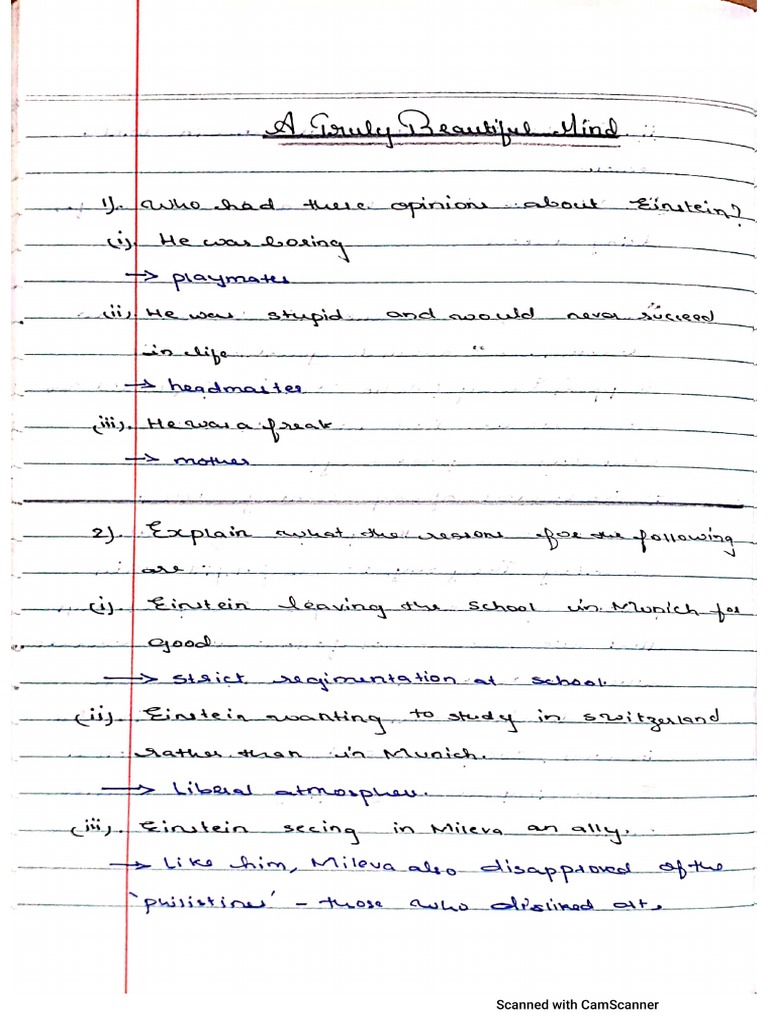 A Truly Beautiful Mind
1). Who had these opinions about Einstein?
(i). He was boring
→ playmates
(ii) He was stupid and would never succeed
in life
→ headmaster
(iii). He was a freak
→ mother
2). Explain what the reasons for the following
are :
(i). Einstein leaving the school in Munich for
good
→ strict regimentation at school.
(ii). Einstein wanting to study in switzerland
rather than in Munich.
→ Liberal atmosphere.
(iii). Einstein seeing in Mileva an ally.
→ Like him, Mileva also disapproved of the
'philistines' - those who disliked art,
Scanned with CamScanner